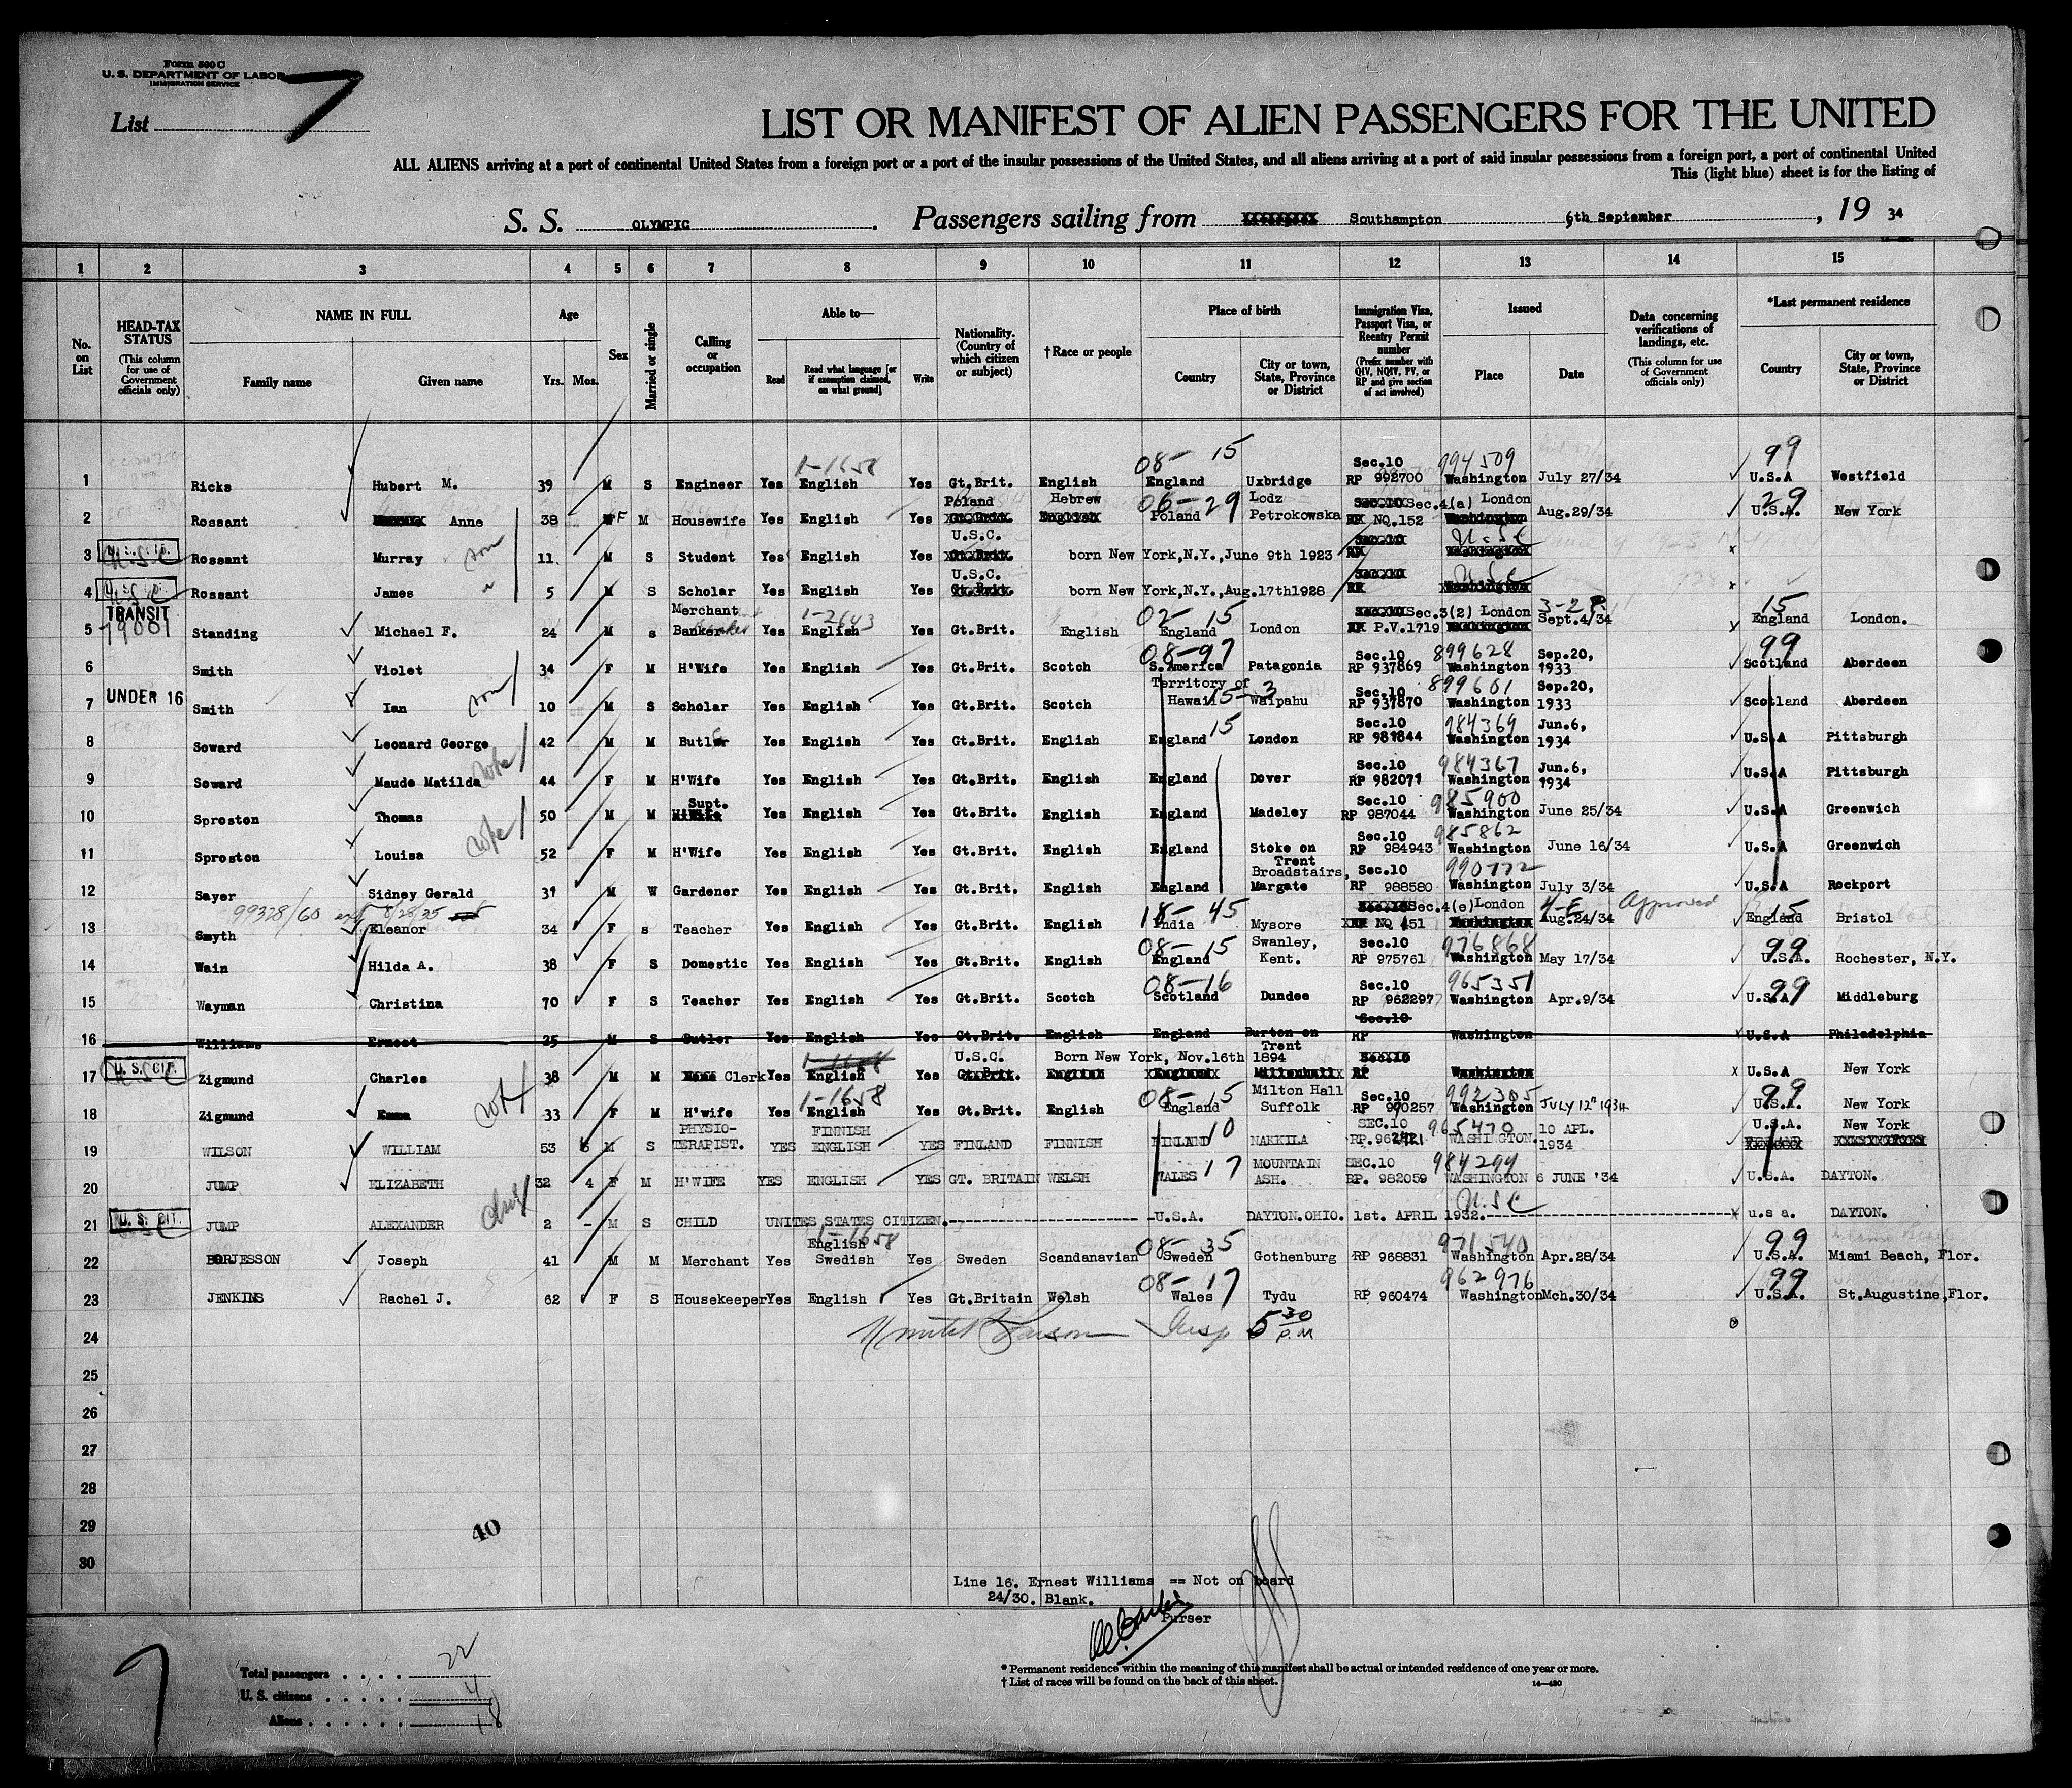 Form 500 C
U. S. DEPARTMENT OF LABOR
IMMIGRATION SERVICE
List 7
LIST OR MANIFEST OF ALIEN PASSENGERS FOR THE UNITED
ALL ALIENS arriving at a port of continental United States from a foreign port or a port of the insular possessions of the United States, and all aliens arriving at a port of said insular possessions from a foreign port, a port of continental United
This (light blue) sheet is for the listing of
S. S. OLYMPIC. Passengers sailing from Southampton 6th September, 19 34
1 2 3 4 5 6 7 8 9 10 11 12 13 14 15
No. on List
HEAD-TAX STATUS
(This column for use of Government officials only)
NAME IN FULL
Family name Given name
Age
Yrs. Mos.
Sex
Married or single
Calling or occupation
Able to—
Read Read what language [or if exemption claimed, on what ground] Write
Nationality. (Country of which citizen or subject)
†Race or people
Place of birth
Country City or town, State, Province or District
Immigration Visa, Passport Visa, or Reentry Permit number
(Prefix number with QIV, NQIV, PV, or RP and give section of act involved)
Issued
Place Date
Data concerning verifications of landings, etc.
(This column for use of Government officials only)
*Last permanent residence
Country City or town, State, Province or District
1-1658 08- 15 Sec.10 994509 99
1 Ricks Hubert M. 39 M S Engineer Yes English Yes Gt.Brit. English England Uxbridge RP 992700 Washington July 27/34 U.S.A Westfield
Poland Hebrew 06-29 Lodz Sec.4(a) London 29
2 Rossant Anne 38 F M Housewife Yes English Yes English Poland Petrokowska NQ.152 Aug.29/34 U.S.A. New York
U.S.C. U.S.C
3 Rossant Murray son 11 M S Student Yes English Yes born New York,N.Y.,June 9th 1923 x
U.S.C. U.S.C
4 Rossant James " 5 M S Scholar Yes English Yes born New York,N.Y.,Aug.17th1928 x
TRANSIT Merchant 1-2643 02- 15 Sec.3(2) London 3-2 15
5 79001 Standing Michael F. 24 M s Banker Yes English Yes Gt.Brit. English England London P.V.1719 Sept.4/34 x England London.
08-97 Sec.10 899628 Sep.20, 99
6 Smith Violet 34 F M H'Wife Yes English Yes Gt.Brit. Scotch S.America Patagonia RP 937869 Washington 1933 Scotland Aberdeen
UNDER 16 Territory of Sec.10 899601 Sep.20,
7 Smith Ian son 10 M S Scholar Yes English Yes Gt.Brit. Scotch Hawaii 15-3 Waipahu RP 937870 Washington 1933 Scotland Aberdeen
15 Sec.10 984369 Jun.6,
8 Soward Leonard George 42 M M Butler Yes English Yes Gt.Brit. English England London RP 981844 Washington 1934 U.S.A Pittsburgh
Sec.10 984367 Jun.6,
9 Soward Maude Matilda wife 44 F M H'Wife Yes English Yes Gt.Brit. English England Dover RP 982071 Washington 1934 U.S.A Pittsburgh
Supt. Sec.10 985900
10 Sproston Thomas 50 M M Yes English Yes Gt.Brit. English England Madeley RP 987044 Washington June 25/34 U.S.A Greenwich
Sec.10 985862
11 Sproston Louisa wife 52 F M H'Wife Yes English Yes Gt.Brit. English England Stoke on Trent RP 984943 Washington June 16/34 U.S.A Greenwich
Broadstairs, Sec.10 990772
12 Sayer Sidney Gerald 31 M W Gardener Yes English Yes Gt.Brit. English England Margate RP 988580 Washington July 3/34 U.S.A Rockport
99328/60 ext 8/28/35 18- 45 Sec.4(e) London 4-E Approved 15
13 Smyth Eleanor 34 F s Teacher Yes English Yes Gt.Brit. English India Mysore NQ 451 Aug.24/34 England Bristol
08-15 Swanley, Sec.10 976868 99
14 Wain Hilda A. 38 F S Domestic Yes English Yes Gt.Brit. English England Kent. RP 975761 Washington May 17/34 U.S.A. Rochester, N.Y.
08-16 Sec.10 965351 99
15 Wayman Christina 70 F S Teacher Yes English Yes Gt.Brit. Scotch Scotland Dundee RP 962297 Washington Apr.9/34 U.S.A Middleburg
Sec.10
16 Williams Ernest 25 M S Butler Yes English Yes Gt.Brit. English England Burton on Trent RP Washington x U.S.A Philadelphia
U. S. CIT. 1-1658 U.S.C. Born New York, Nov.16th 1894
17 Zigmund Charles 38 M M Clerk Yes English Yes x U.S.A New York
1-1658 08-15 Milton Hall Sec.10 992305 99
18 Zigmund Emma wife 33 F M H'wife Yes English Yes Gt.Brit. English England Suffolk RP 990257 Washington JULY 12" 1934 U.S.A. New York
PHYSIO- FINNISH 10 SEC.10 965470 10 APL. U.S.A. New York
19 WILSON WILLIAM 53 M S TERAPIST. YES ENGLISH YES FINLAND FINNISH FINLAND NAKKILA RP.962421 WASHINGTON. 1934
17 MOUNTAIN SEC.10 984299
20 JUMP ELIZABETH 32 4 F M H'WIFE YES ENGLISH YES GT. BRITAIN WELSH WALES ASH. RP. 982059 WASHINGTON 6 JUNE '34 U.S.A. DAYTON.
U. S. CIT. U.S.C
21 JUMP ALEXANDER child 2 - M S CHILD UNITES STATES CITIZEN.-----U.S.A. DAYTON.OHIO. 1st. APRIL 1932.----- x u.s a. DAYTON.
English 1-1658 08- 35 971540 99
22 BORJESSON Joseph 41 M M Merchant Yes Swedish Yes Sweden Scandanavian Sweden Gothenburg RP 968831 Washington Apr.28/34 U.S.A. Miami Beach, Flor.
08- 17 962976 99
23 JENKINS Rachel J. 62 F S Housekeeper Yes English Yes Gt.Britain Welsh Wales Tydu RP 960474 Washington Mch.30/34 U.S.A. St.Augustine,Flor.
24 Larson Insp 5 30 P.M
25
26
27
28
29 40
30
Line 16. Ernest Williams == Not on board
24/30. Blank.
Purser
7
Total passengers . . . . 22
U. S. citizens . . . . . 4
Aliens . . . . . . 18
* Permanent residence within the meaning of this manifest shall be actual or intended residence of one year or more.
† List of races will be found on the back of this sheet.
14—430